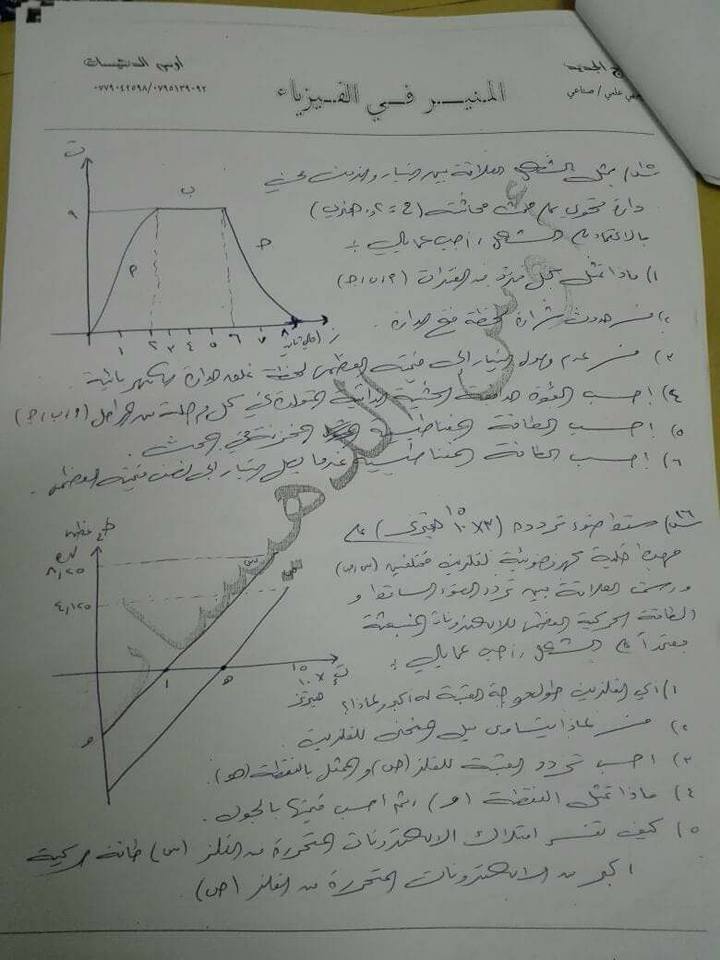 أوس الدهيسات
٠٧٩٥١٣٩٠٩٢/٠٧٧٩٠٤٢٥٩٨
المنير في الفيزياء
ج الجديد
علمي / صناعي
س١٥/ يمثل الشكل العلاقة بين التيار والزمن في
دارة تحتوي على محث محاثته (ح = ٠,٢ هنري)
بالاعتماد على الشكل، أجب عما يلي :
١) ماذا تمثل كل فترة من الفترات (أ، ب، جـ)
٢) فسر حدوث شرارة لحظة فتح الدارة.
٣) فسر عدم وصول التيار إلى قيمته العظمى لحظة غلق الدارة الكهربائية.
٤) احسب القوة الدافعة الحثية الذاتية المتولدة في كل مرحلة من المراحل (أ، ب، جـ)
٥) احسب الطاقة المغناطيسية المخزنة في المحث.
٦) احسب الطاقة المغناطيسية عندما يصل التيار إلى نصف قيمته العظمى.
ت
٩
أ
ب
جـ
١ ٢ ٣ ٤ ٥ ٦ ٧ ٨
ز
س١٦/ سقط ضوء تردده (٣×١٠^١٥ هيرتز) على
مهبط خلية كهروضوئية لفلزين مختلفين (س، ص)
ورسمت العلاقة بين تردد الضوء الساقط و
الطاقة الحركية العظمى للإلكترونات المنبعثة
معتمداً على الشكل، أجب عما يلي :
١) أي الفلزين طول موجة العتبة له أكبر ولماذا؟
٢) فسر لماذا يتساوى ميل المنحنى للفلزين.
٣) احسب تردد العتبة للفلز (ص) والممثل بالنقطة (هـ).
٤) ماذا تمثل النقطة (و)، ثم احسب قيمتها بالجول.
٥) كيف تفسر امتلاك الإلكترونات المتحررة من الفلز (س) طاقة حركية
أكبر من الإلكترونات المتحررة من الفلز (ص)
ط ح عظمى
٨,٢٥
٤,١٢٥
س
ص
١
هـ
و
ت د × ١٠^١٥
هيرتز
أوس الدهيسات